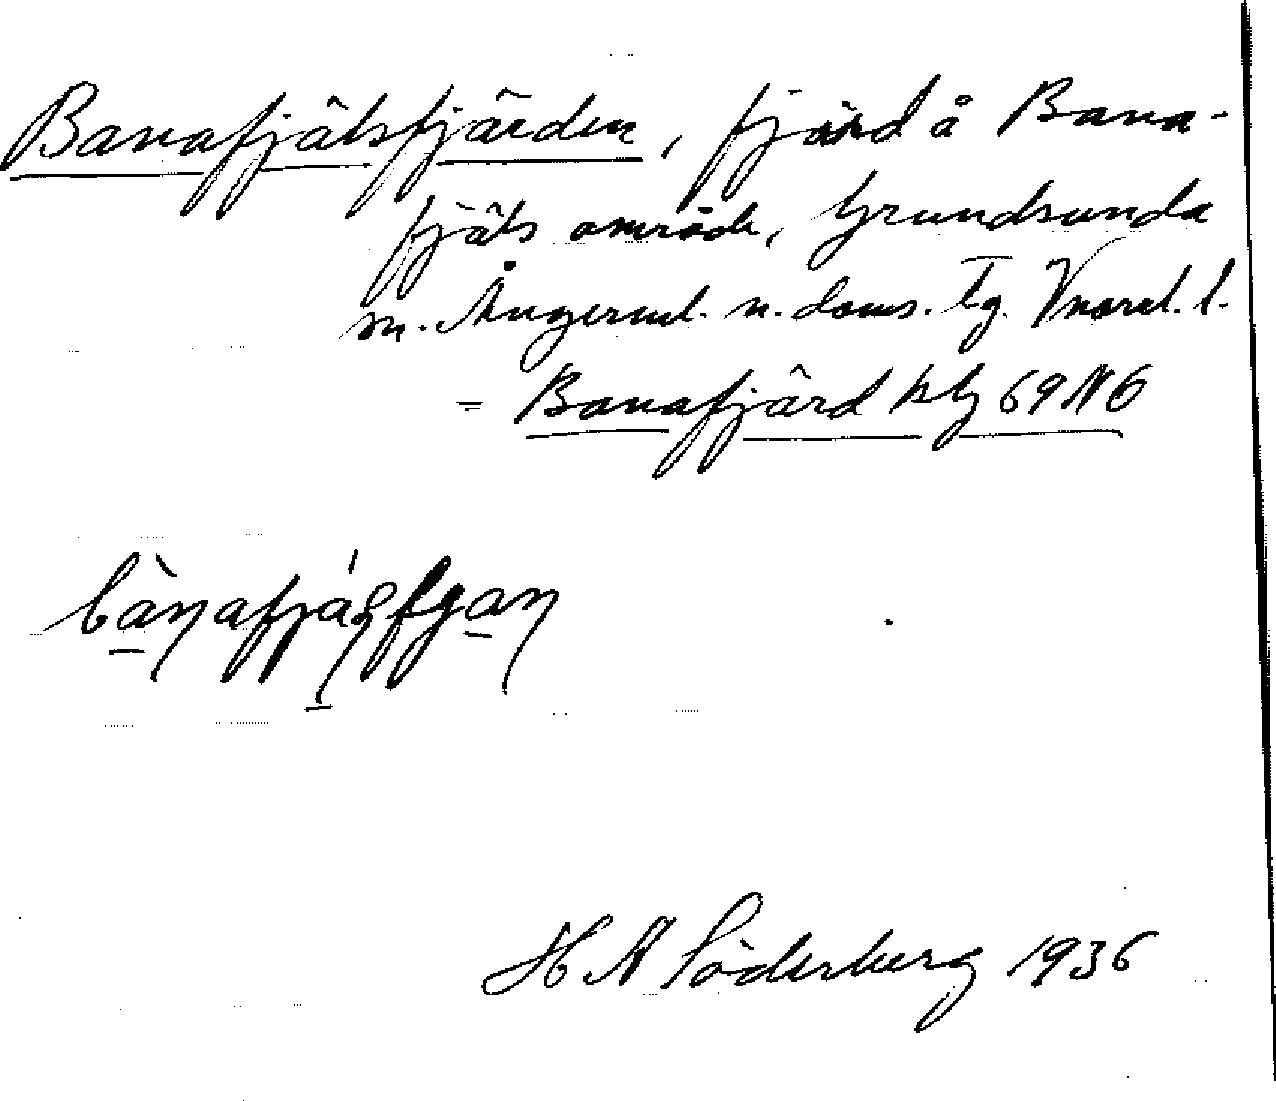 Banafjälsfjärden, fjärd å Bana-
fjäls område, Grundsunda
sn. Ångerml. n. doms. tg. Vnorrl. l.
= Banafjärd kbg 69 NO
H A Söderberg 1936